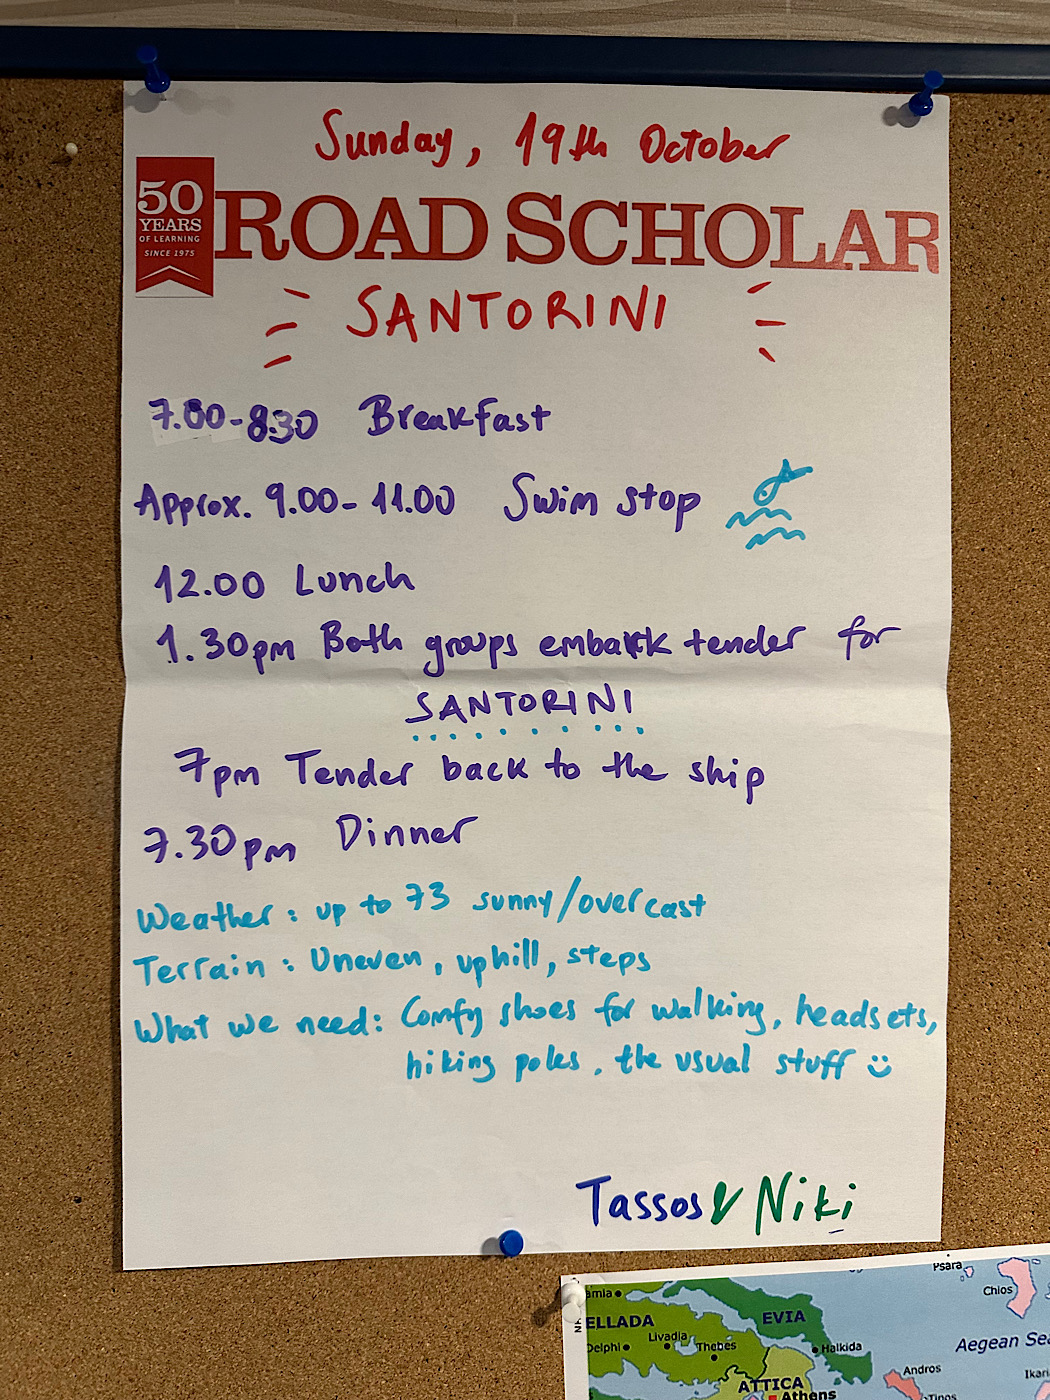 Sunday, 19th October
50
YEARS
OF LEARNING
SINCE 1975
ROAD SCHOLAR
SANTORINI
7.00-8.30 Breakfast
Approx. 9.00-11.00 Swim stop
12.00 Lunch
1.30pm Both groups embark tender for
SANTORINI
7pm Tender back to the ship
7.30pm Dinner
Weather: up to 73 sunny/overcast
Terrain: Uneven, uphill, steps
What we need: Comfy shoes for walking, headsets,
hiking poles, the usual stuff
Tassos & Niki
Psara
Chios
amia
ELLADA
EVIA
Delphi
Livadia
Thebes
Halkida
Aegean Se
ATTICA
Athens
Andros
Tinos
Ikari